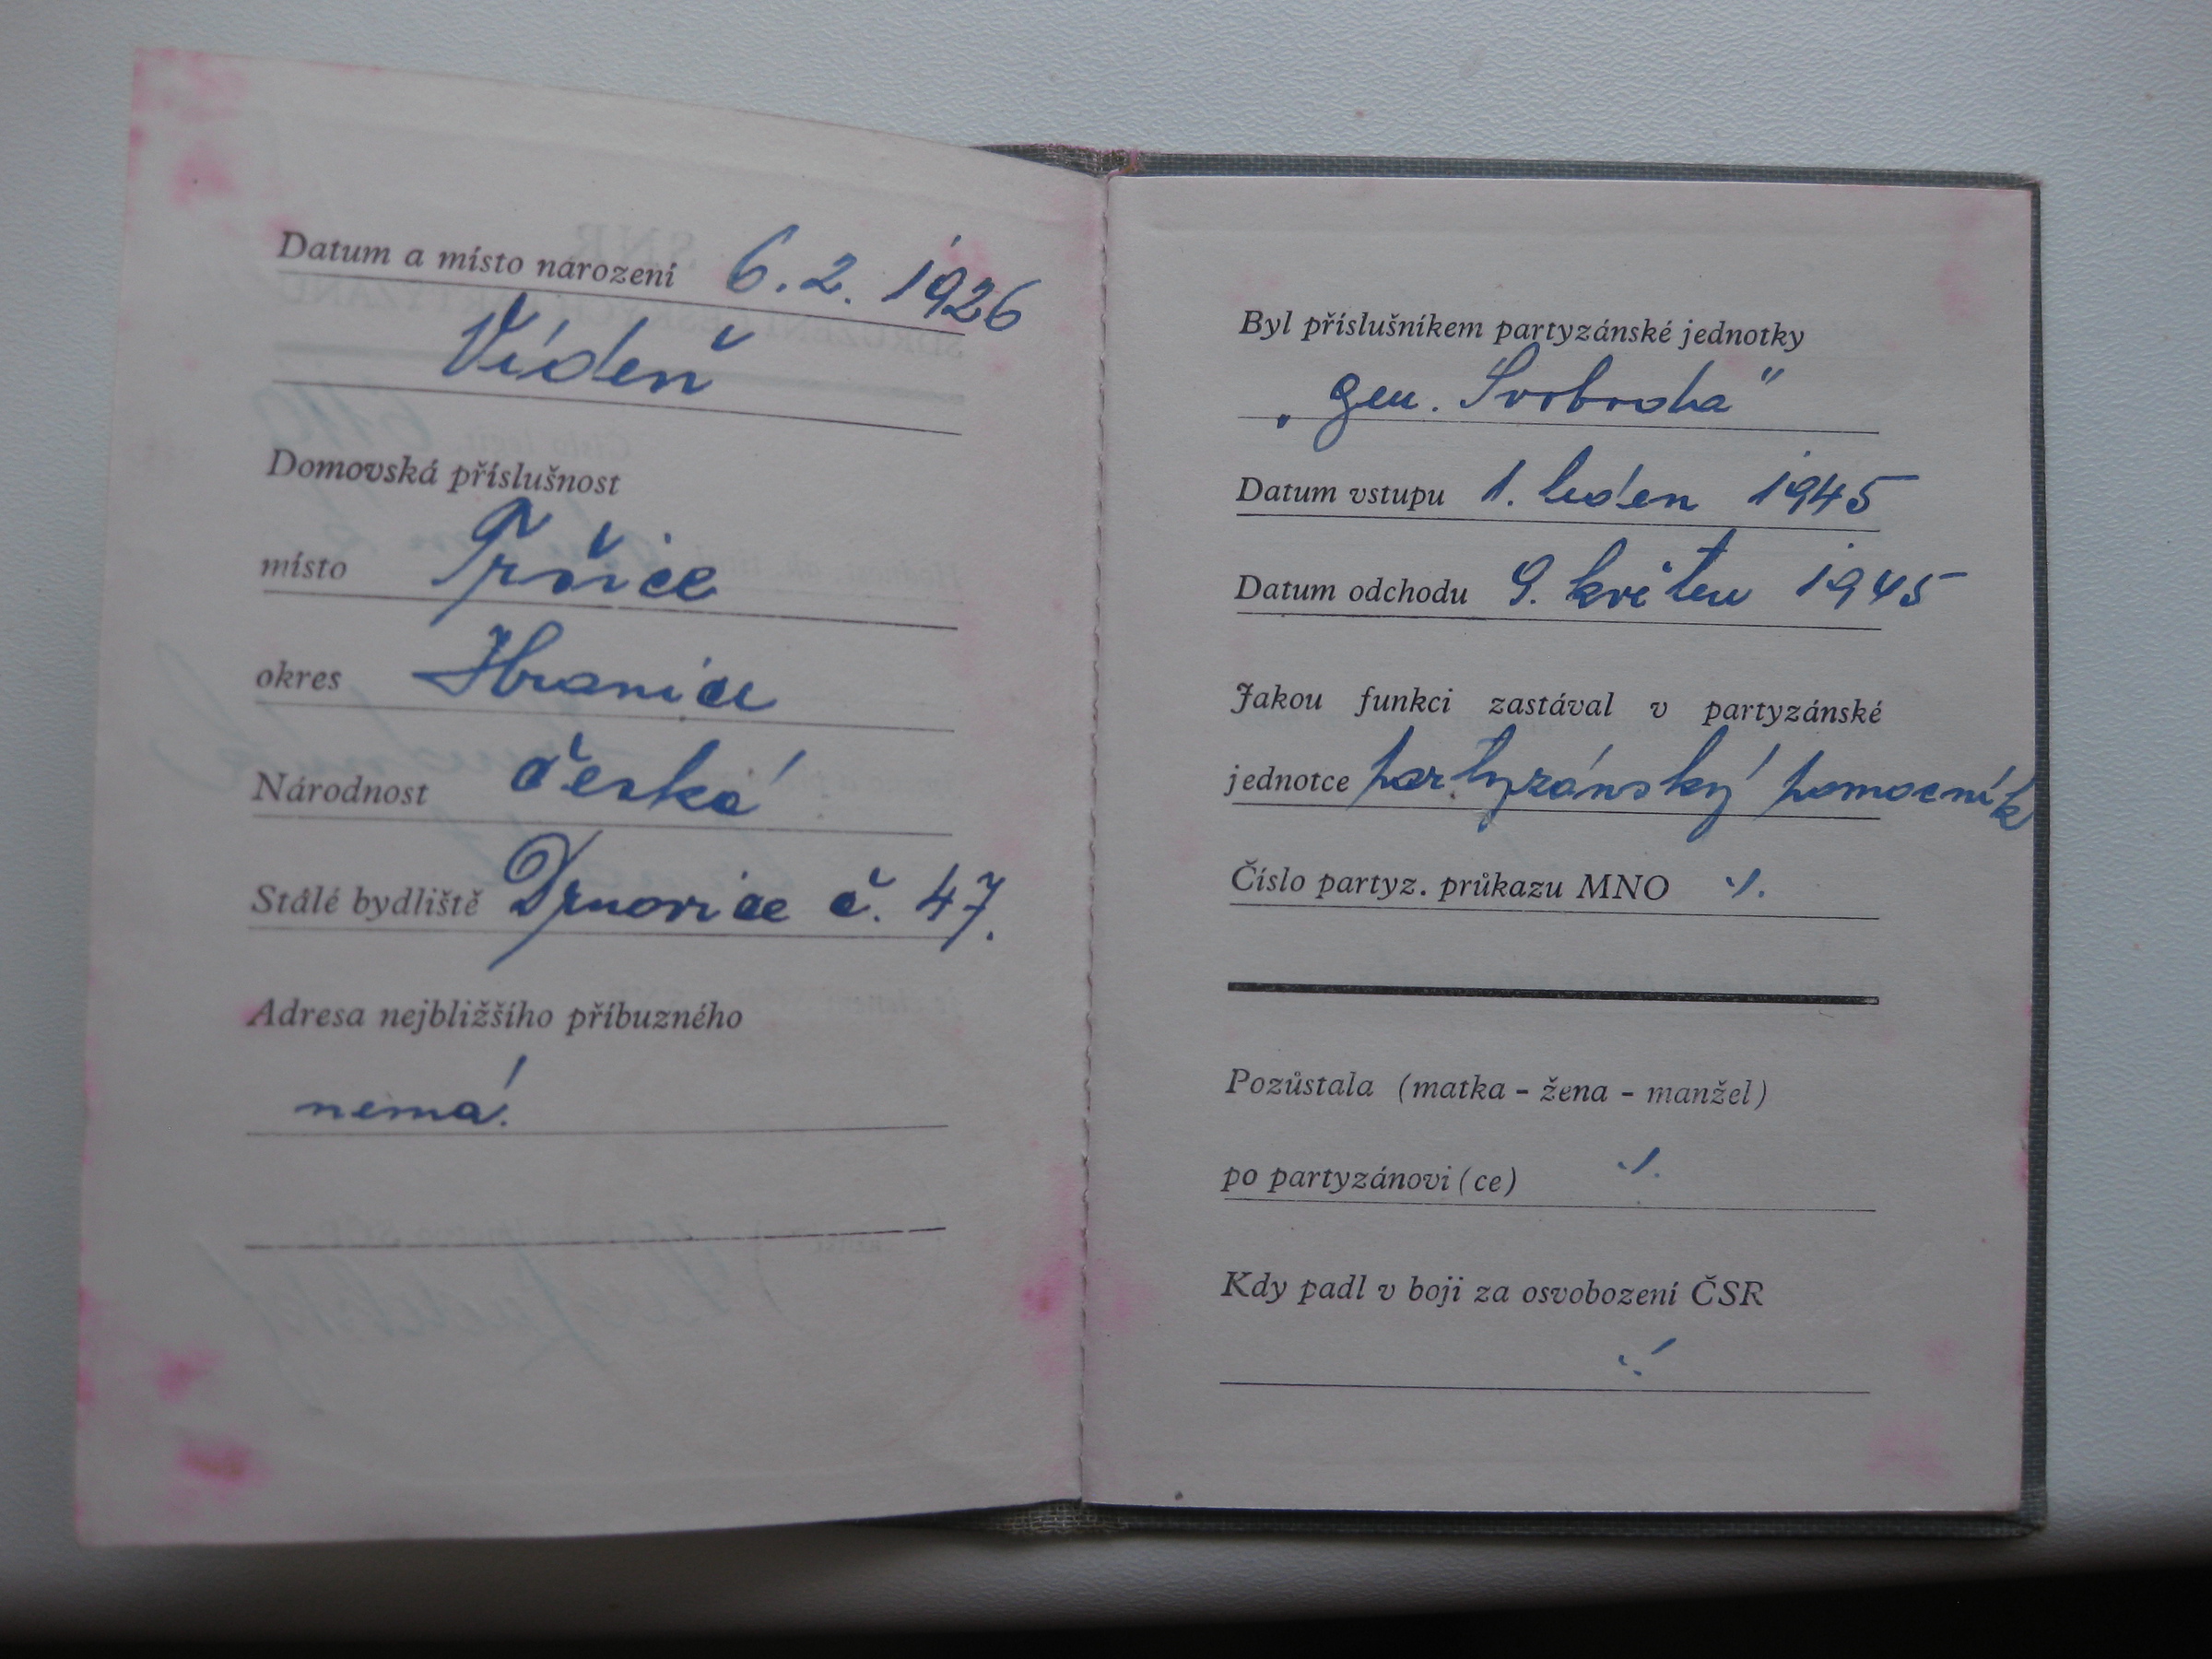 Datum a místo narození 6. 2. 1926
Vídeň
Domovská příslušnost
místo Tršice
okres Hranice
Národnost česká
Stálé bydliště Drnovice č. 47.
Adresa nejbližšího příbuzného
nemá.
Byl příslušníkem partyzánské jednotky
„gen. Svoboda"
Datum vstupu 1. leden 1945
Datum odchodu 9. květen 1945
Jakou funkci zastával v partyzánské
jednotce partyzánský pomocník
Číslo partyz. průkazu MNO ./.
Pozůstala (matka - žena - manžel)
po partyzánovi (ce) ./.
Kdy padl v boji za osvobození ČSR
./.